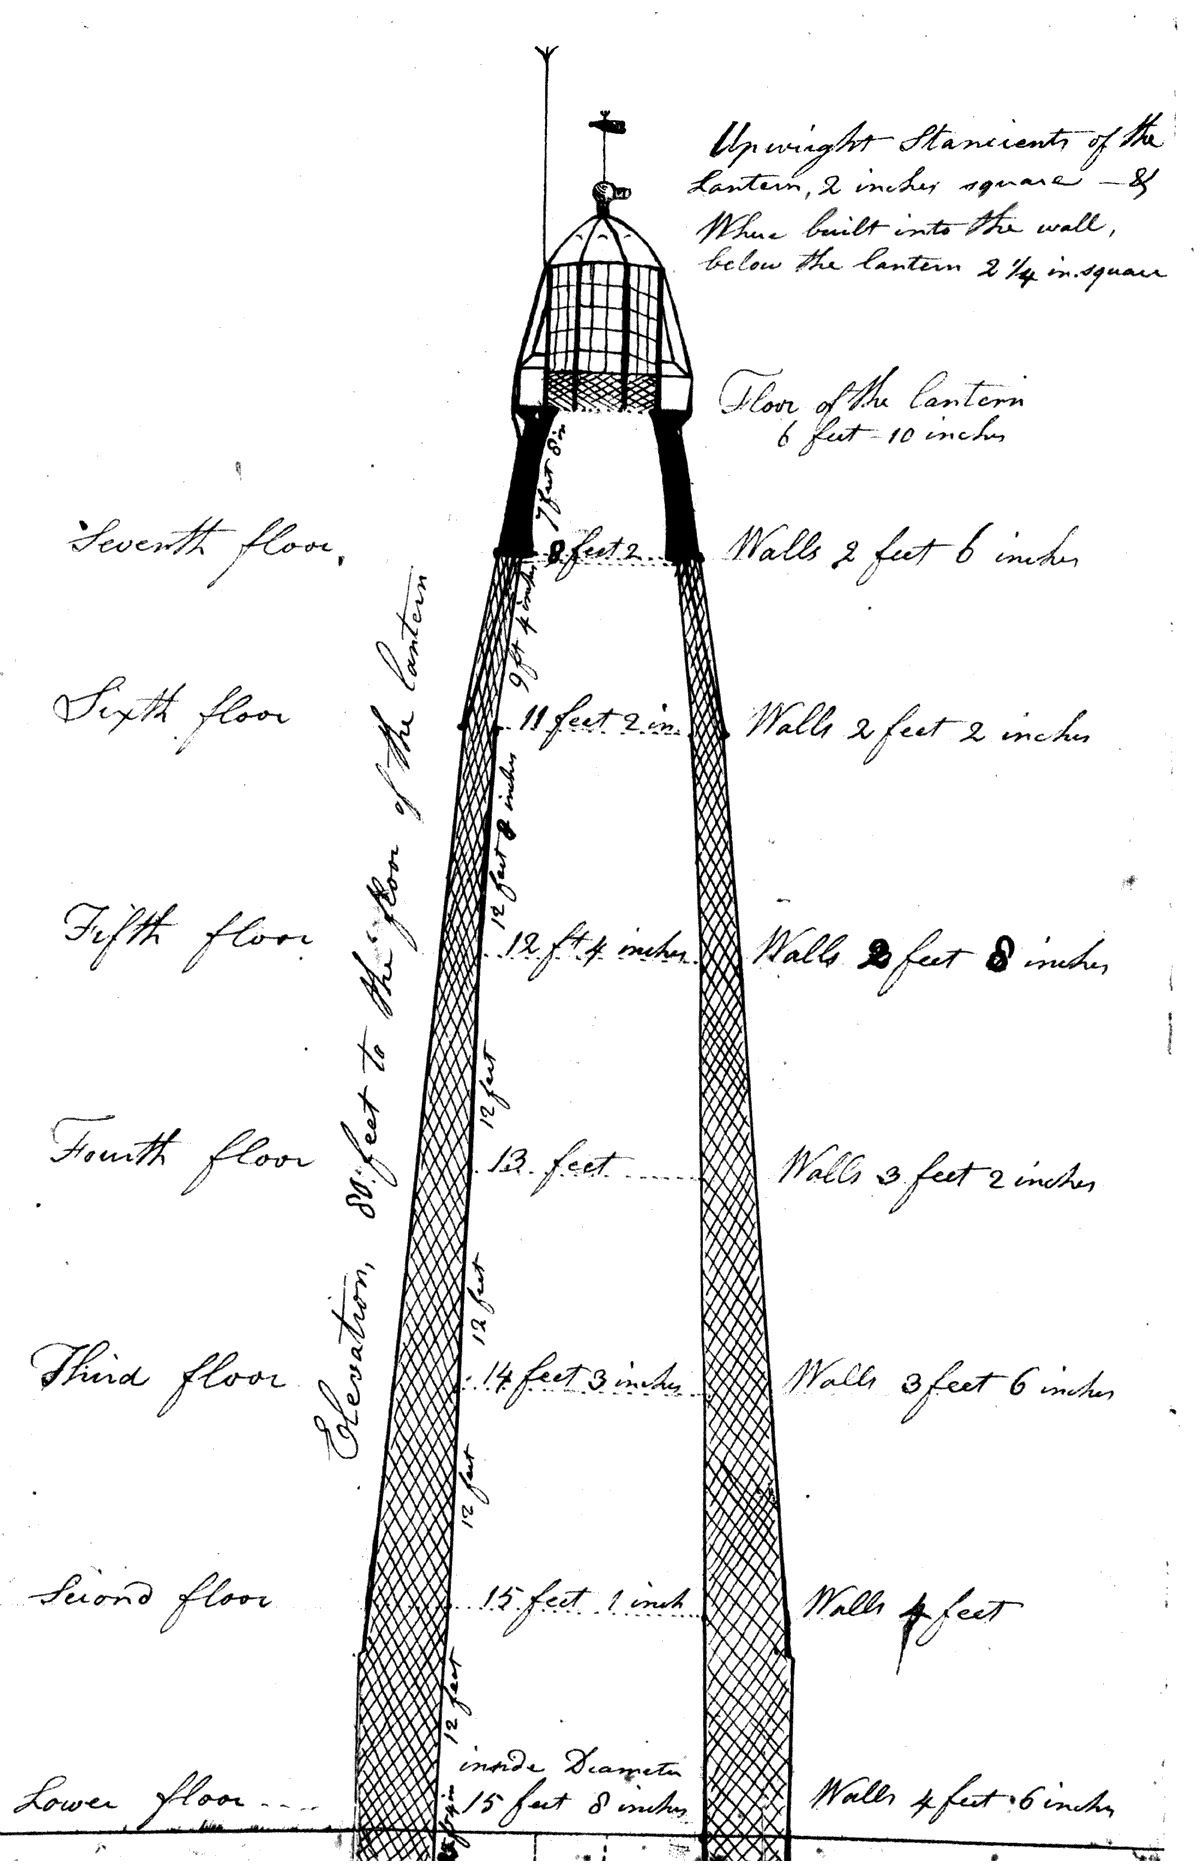 Upwright Stancients of the
Lantern, 2 inches square - &
Where built into the wall,
below the lantern 2 1/4 in. square
Floor of the lantern
6 feet - 10 inches
7 feet 8 in
Seventh floor.
8 feet 2
Walls 2 feet 6 inches
9 ft 4 inches
Sixth floor
11 feet 2 in.
Walls 2 feet 2 inches
12 feet 8 inches
Elevation, 80 feet to the floor of the lantern
Fifth floor
12 ft 4 inches
Walls 2 feet 8 inches
12 feet
Fourth floor
13 feet
Walls 3 feet 2 inches
12 feet
Third floor
14 feet 3 inches
Walls 3 feet 6 inches
12 feet
Second floor
15 feet 1 inch
Walls 4 feet
12 feet
Lower floor
inside Diameter
15 feet 8 inches
Walls 4 feet 6 inches